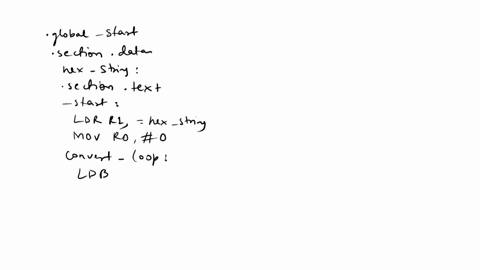 .global _start
.section .data
hex_string:
.section .text
_start:
LDR R1, =hex_string
MOV R0, #0
convert_loop:
LDB